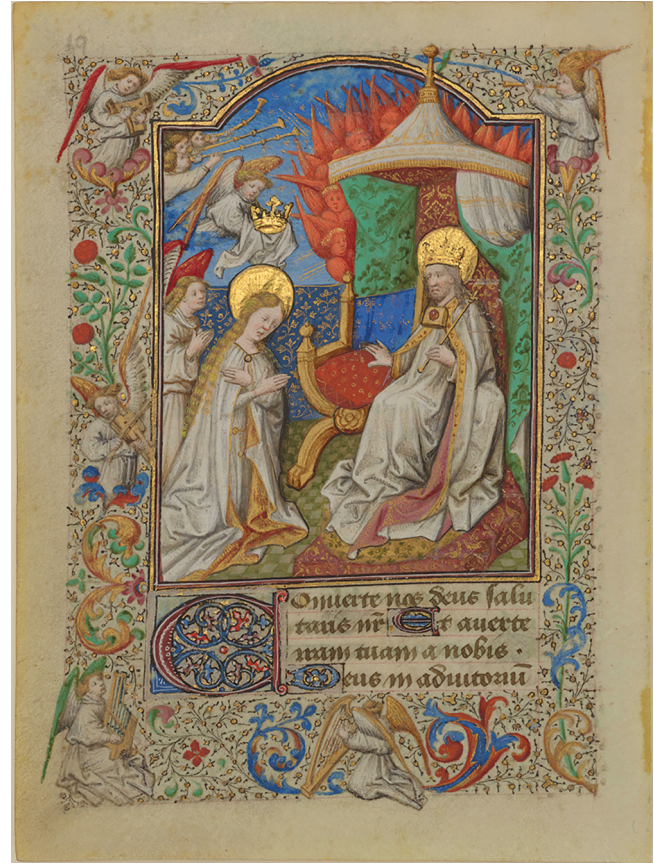 19
Conuerte nos deus salu
taris nr̄ Et auerte
iram tuam a nobis ·
Deus in adiutoriū